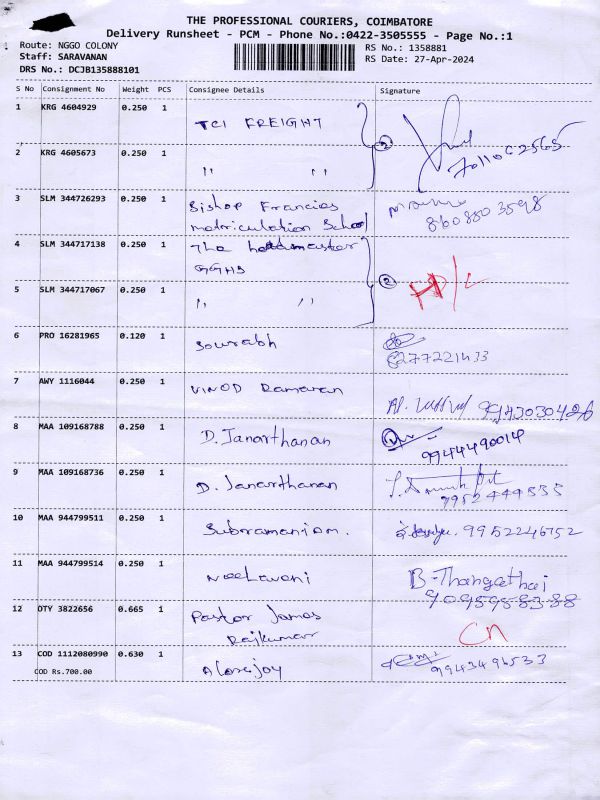 THE PROFESSIONAL COURIERS, COIMBATORE
Delivery Runsheet - PCM - Phone No.:0422-3505555 - Page No.:1
Route: NGGO COLONY
RS No.: 1358881
Staff: SARAVANAN
RS Date: 27-Apr-2024
DRS No.: DCJB135888101
S No Consignment No Weight PCS Consignee Details Signature
1 KRG 4604929 0.250 1 TCI FREIGHT
2 KRG 4605673 0.250 1 " " 2
3 SLM 344726293 0.250 1 Bishop Francias
matriculation School 8608503598
4 SLM 344717138 0.250 1 The headmaster
GGHS
5 SLM 344717067 0.250 1 " " 2
6 PRO 16281965 0.120 1 Sourabh
8277221433
7 AWY 1116044 0.250 1 VINOD Ramaran
9943030426
8 MAA 109168788 0.250 1 D. Janarthanan
9944490014
9 MAA 109168736 0.250 1 D. Janarthanan
7952444535
10 MAA 944799511 0.250 1 Subramaniam. 9952246752
11 MAA 944799514 0.250 1 Neelavani B-Thangathai
9095958388
12 OTY 3822656 0.665 1 Pastor James
Rajkumar CN
13 COD 1112080990 0.630 1 Alorejoy 9943496533
COD Rs.700.00